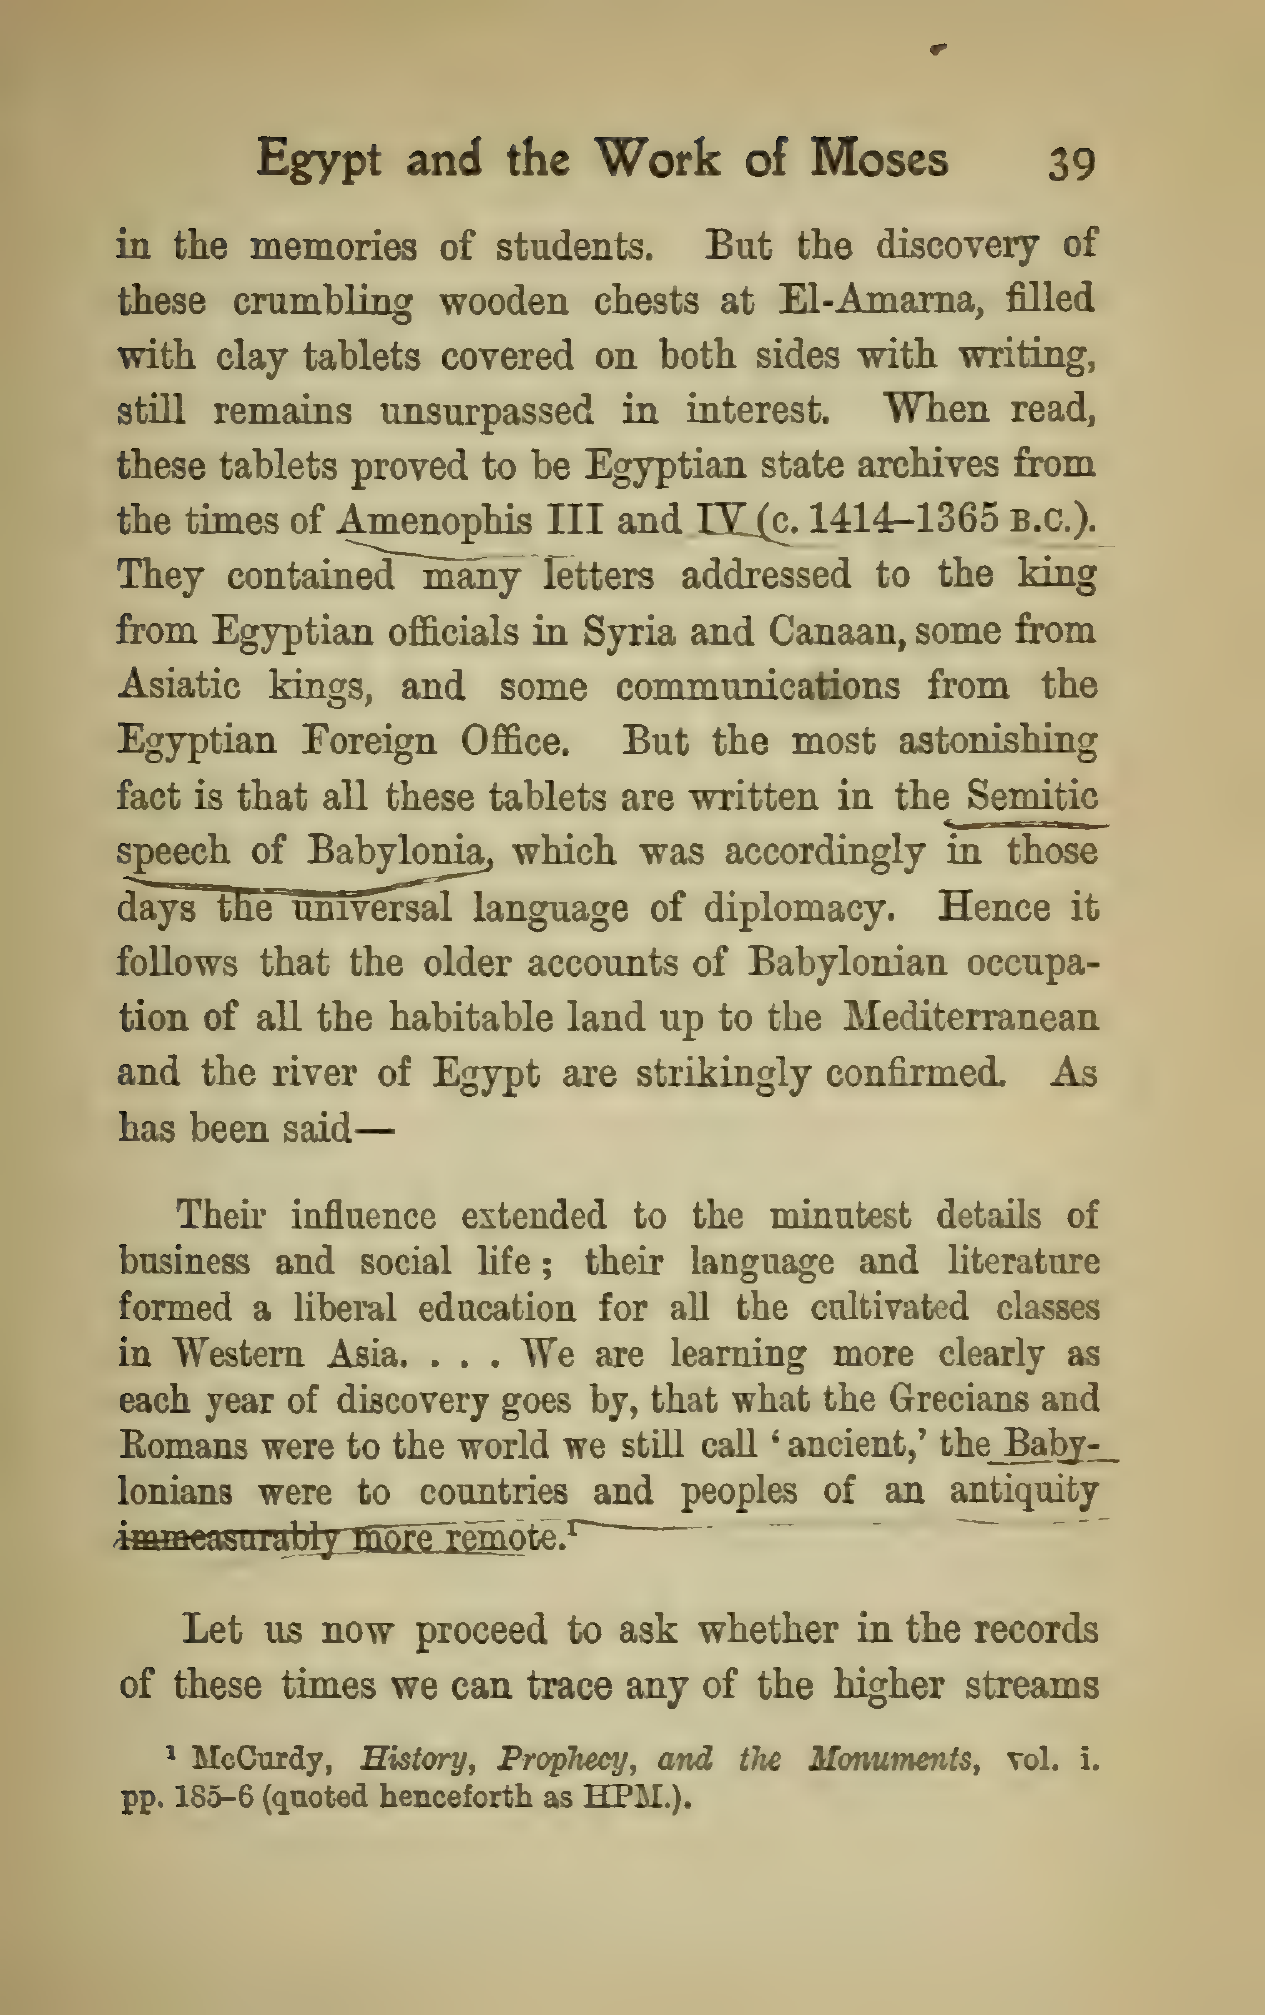 Egypt and the Work of Moses 39
in the memories of students. But the discovery of
these crumbling wooden chests at El-Amarna, filled
with clay tablets covered on both sides with writing,
still remains unsurpassed in interest. When read,
these tablets proved to be Egyptian state archives from
the times of Amenophis III and IV (c. 1414–1365 B.C.).
They contained many letters addressed to the king
from Egyptian officials in Syria and Canaan, some from
Asiatic kings, and some communications from the
Egyptian Foreign Office. But the most astonishing
fact is that all these tablets are written in the Semitic
speech of Babylonia, which was accordingly in those
days the universal language of diplomacy. Hence it
follows that the older accounts of Babylonian occupa-
tion of all the habitable land up to the Mediterranean
and the river of Egypt are strikingly confirmed. As
has been said—
Their influence extended to the minutest details of
business and social life; their language and literature
formed a liberal education for all the cultivated classes
in Western Asia. . . . We are learning more clearly as
each year of discovery goes by, that what the Grecians and
Romans were to the world we still call ‘ancient,’ the Baby-
lonians were to countries and peoples of an antiquity
immeasurably more remote.¹
Let us now proceed to ask whether in the records
of these times we can trace any of the higher streams
¹ McCurdy, History, Prophecy, and the Monuments, vol. i.
pp. 185–6 (quoted henceforth as HPM.).